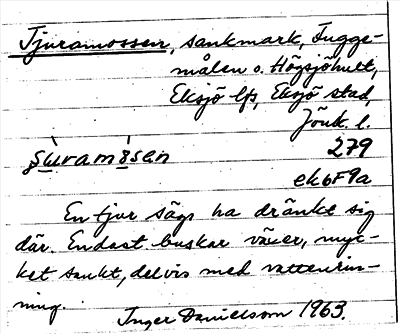 Tjuramossen, sankmark, Fugge-
målen o. Högsjöhult,
Eksjö lfs, Eksjö stad,
Jönk. l.
279
ek6F9a
En tjur sägs ha dränkt sig
där. Endast buskar växer, myc-
ket sankt, delvis med vattenrin-
ning.
Inger Danielsson 1963.